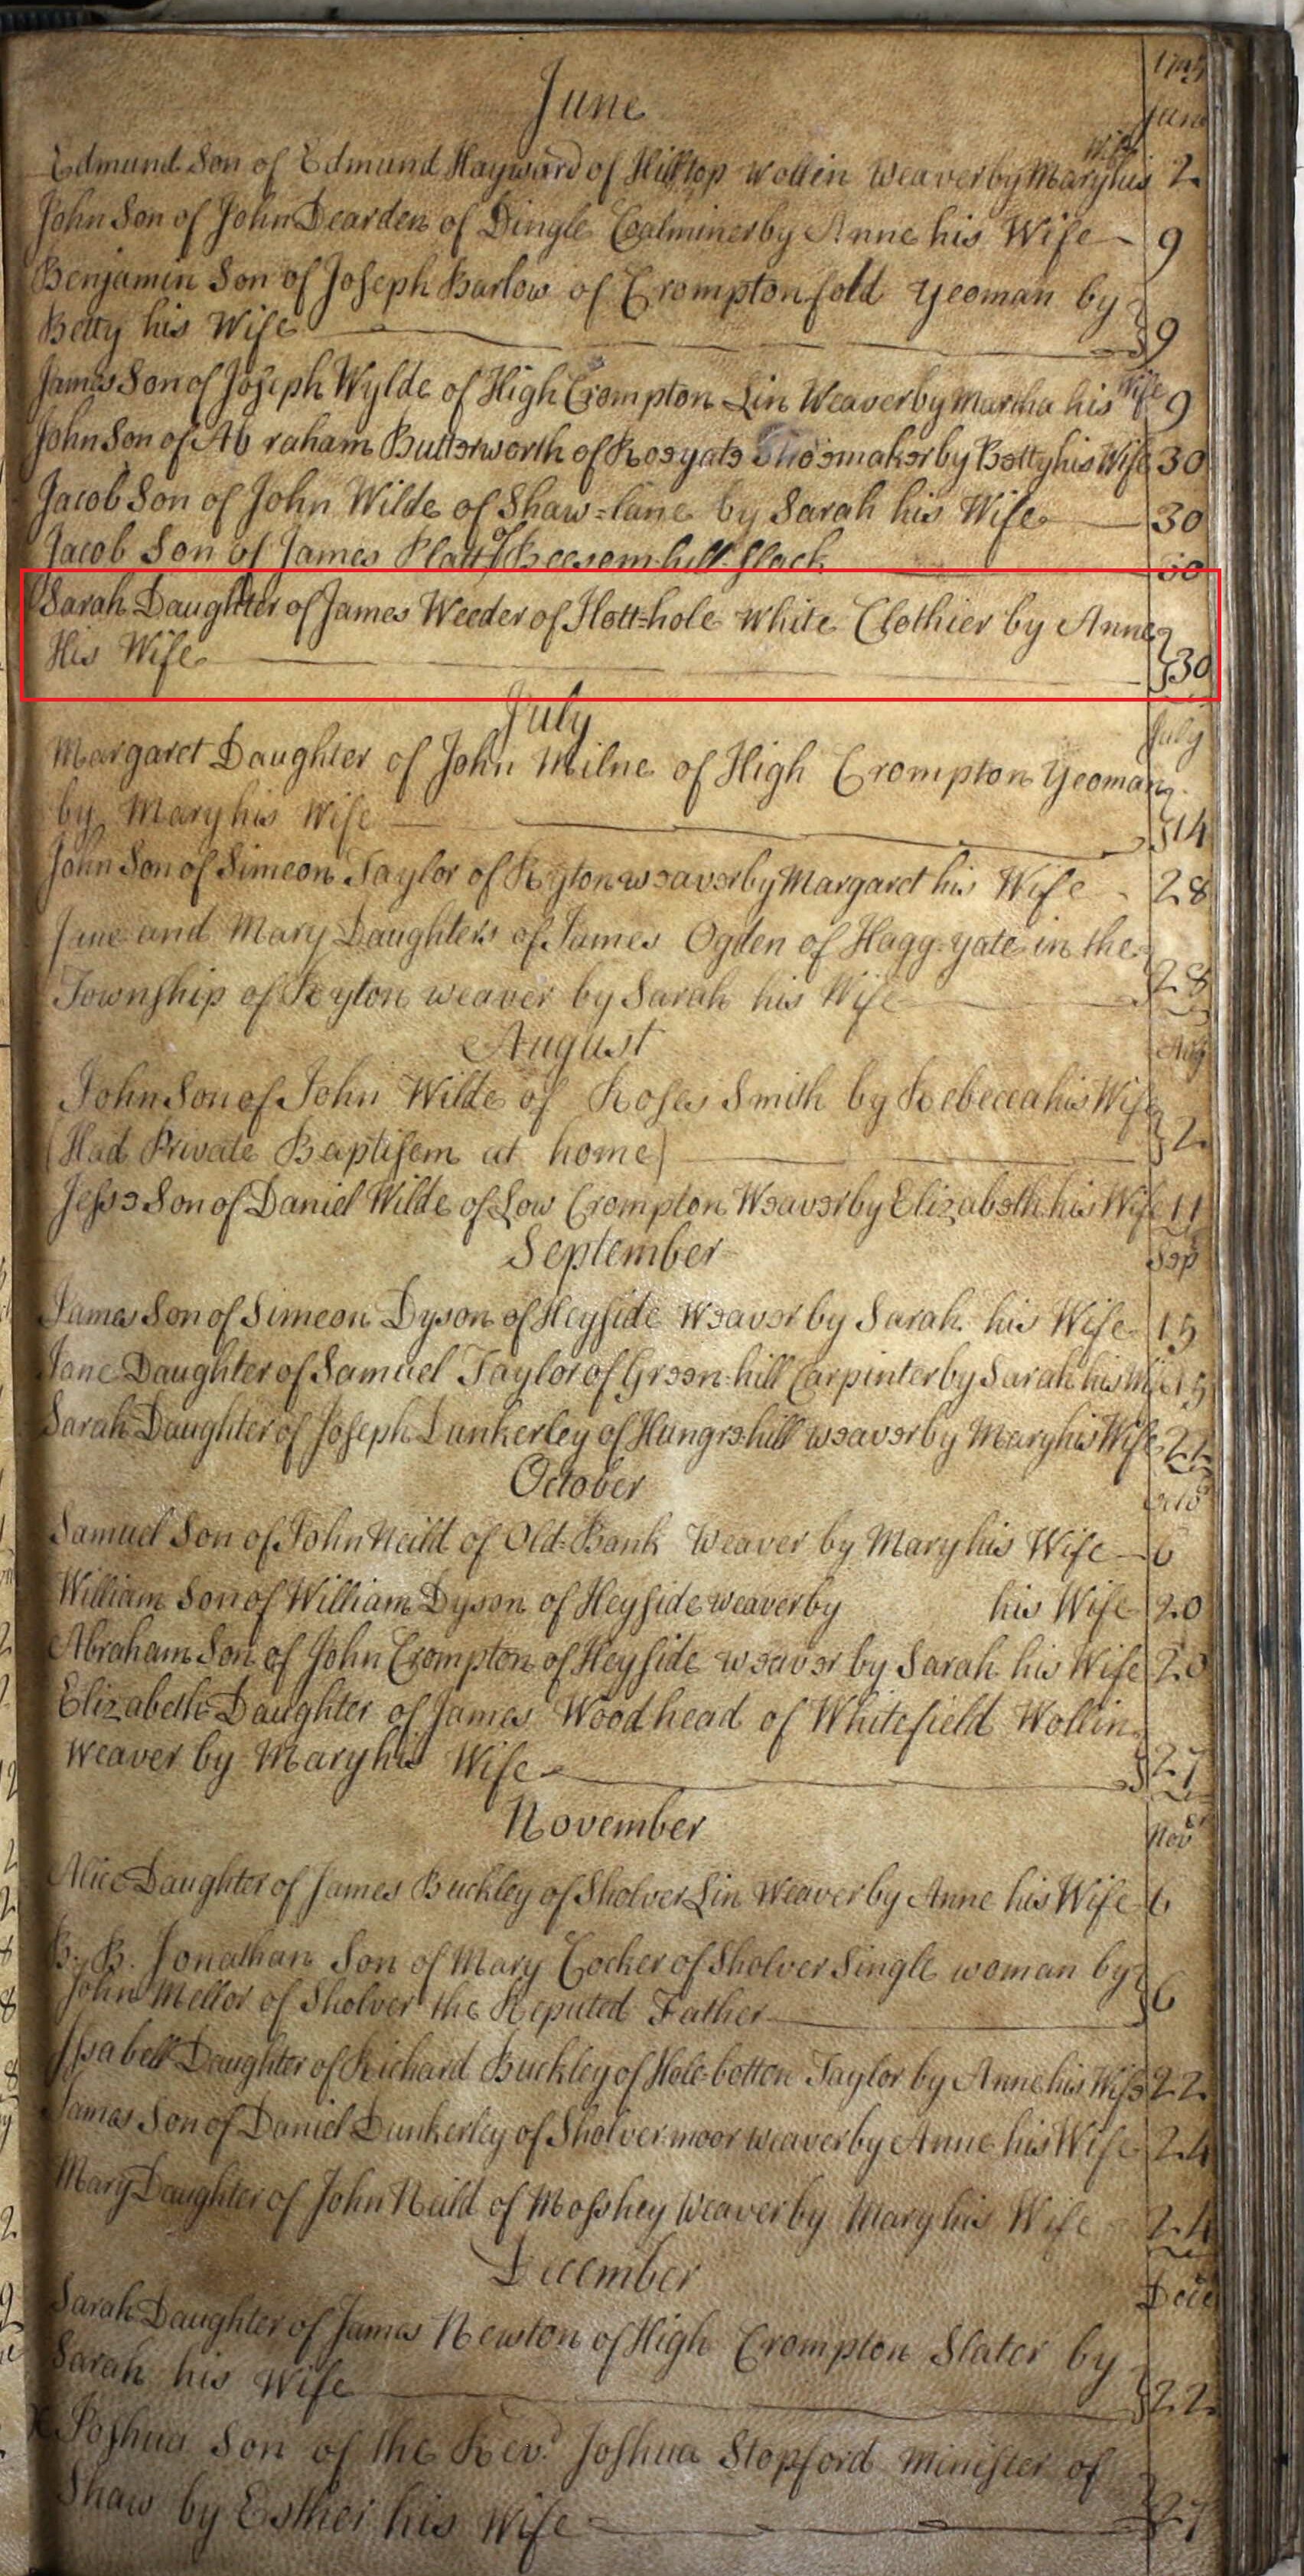 1745
June
June
Wife
Edmund Son of Edmund Hayward of Hilltop wollin weaver by Mary his 2
John Son of John Dearden of Dingle Coalminer by Anne his Wife 9
Benjamin Son of Joseph Barlow of Crompton fold Yeoman by
Betty his Wife 9
James Son of Joseph Wylde of High Crompton Lin Weaver by Martha his Wife 9
John Son of Ab raham Butterworth of Roeyate Shoemaker by Betty his Wife 30
Jacob Son of John Wilde of Shaw=lane by Sarah his Wife 30
Jacob Son of James Platt of Beesom-hill Slack 30
Sarah Daughter of James Weeder of Hott=hole White Clothier by Anne
His Wife 30
July
July
Margaret Daughter of John Milne of High Crompton Yeoman
by Mary his Wife 14
John Son of Simeon Taylor of Ryton weaver by Margaret his Wife 28
Jane and Mary Daughters of James Ogden of Hagg-yate in the
Township of Royton weaver by Sarah his Wife 28
August
Aug
John Son of John Wilde of Roses Smith by Rebecca his Wife
(Had Private Baptisem at home) 2
Jesse Son of Daniel Wilde of Low Crompton Weaver by Elizabeth his Wife 11
September
Sep
James Son of Simeon Dyson of Heyside Weaver by Sarah his Wife 15
Jane Daughter of Samuel Taylor of Green-hill Carpinter by Sarah his Wife 15
Sarah Daughter of Joseph Dunkerley of Hungre-hill weaver by Mary his Wife 22
October
Octo
Samuel Son of John Neild of Old=Bank Weaver by Mary his Wife 6
William Son of William Dyson of Heyside weaver by his Wife 20
Abraham Son of John Crompton of Heyside weaver by Sarah his Wife 20
Elizabeth Daughter of James Woodhead of Whitefield Wollin
weaver by Mary his Wife 27
November
Nov
Alice Daughter of James Buckley of Sholver Lin Weaver by Anne his Wife 6
B:B. Jonathan Son of Mary Cocker of Sholver Single woman by
John Mellor of Sholver the Reputed Father 6
Isabell Daughter of Richard Buckley of Hole-botton Taylor by Anne his Wife 22
James Son of Daniel Dunkerley of Sholver moor weaver by Anne his Wife 24
Mary Daughter of John Neild of Mosshey Weaver by Mary his Wife 24
December
Dece
Sarah Daughter of James Newton of High Crompton Slater by
Sarah his Wife 22
x Joshua Son of the Revd Joshua Stopford Minister of
Shaw by Esther his Wife 27